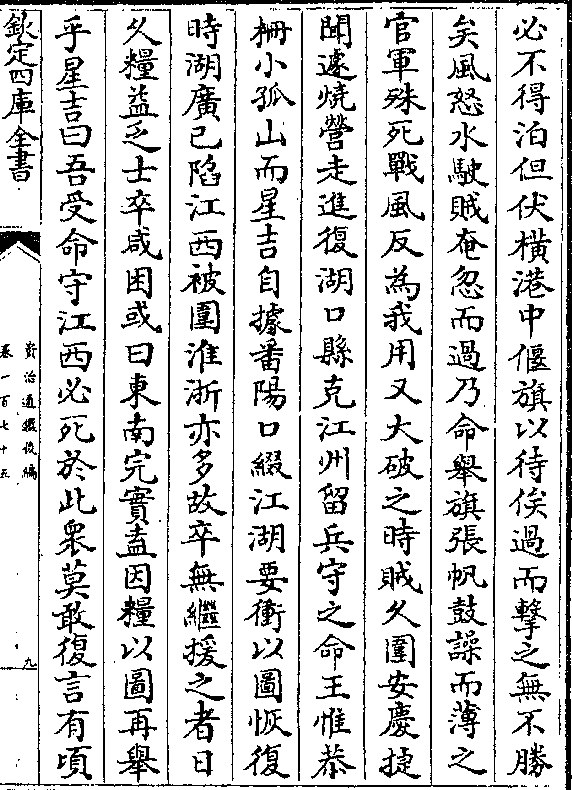 必不得泊但伏横港中偃旗以待俟過而擊之無不勝
矣風怒水駛賊奄忽而過乃命舉旗張帆鼓譟而薄之
官軍殊死戰風反為我用又大破之時賊久圍安慶捷
聞遽燒營走進復湖口縣克江州留兵守之命王惟恭
柵小孤山而星吉自據番陽口綴江湖要衝以圖恢復
時湖廣已陷江西被圍淮浙亦多故卒無繼援之者日
久糧益乏士卒咸困或曰東南完實盍因糧以圖再舉
乎星吉曰吾受命守江西必死於此衆莫敢復言有頃
欽定四庫全書
資治通鑑後編
卷一百七十五
九